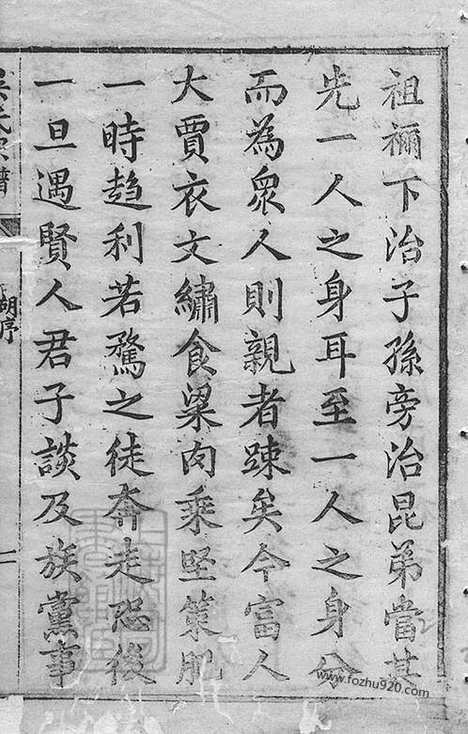 祖禰下治子孫旁治昆弟當其
先一人之身耳至一人之身分
而為眾人則親者踈矣今富人
大賈衣文繡食粱肉乘堅策肥
一時趨利若騖之徒奔走恐後
一旦遇賢人君子談及族黨事
氏宗譜
胡序
www.fozhu920.com